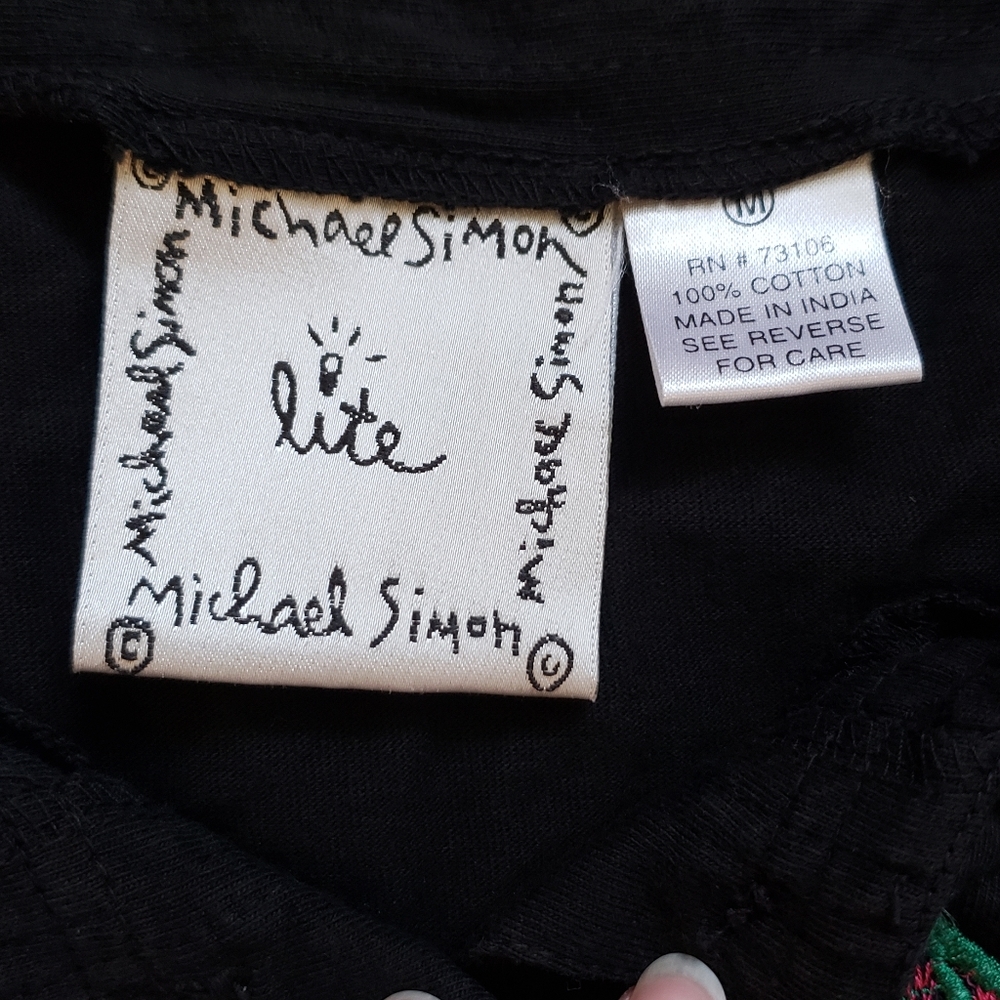 © Michael Simon ©
Michael Simon
lite
Michael Simon
Michael Simon
© ©
M
RN # 73106
100% COTTON
MADE IN INDIA
SEE REVERSE
FOR CARE